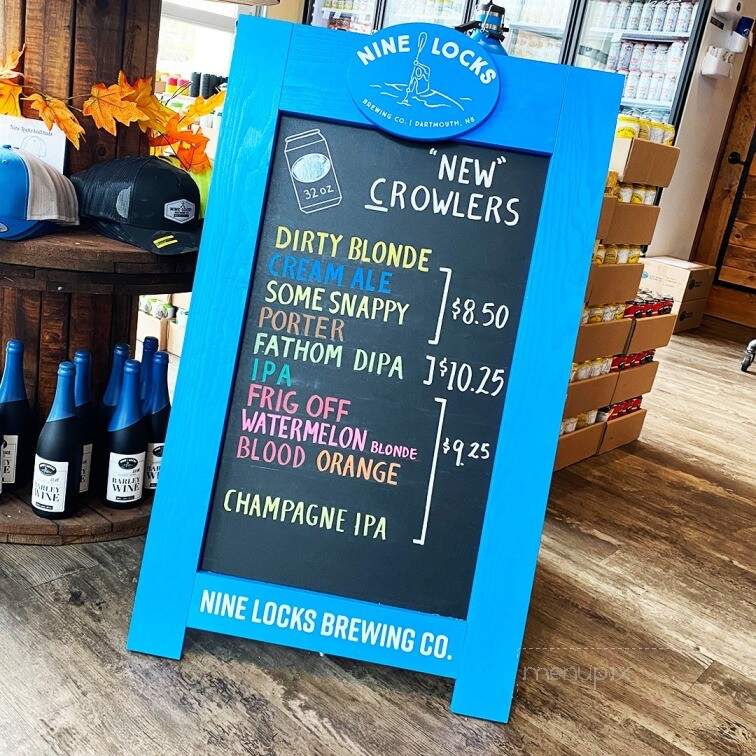 NINE LOCKS
BREWING CO. | DARTMOUTH, NS
"NEW"
CROWLERS
32 OZ
DIRTY BLONDE
CREAM ALE
SOME SNAPPY
$8.50
PORTER
FATHOM DIPA
$10.25
IPA
FRIG OFF
WATERMELON BLONDE
$9.25
BLOOD ORANGE
CHAMPAGNE IPA
NINE LOCKS BREWING CO.
BARLEY
WINE
BARLEY
WINE
menupix